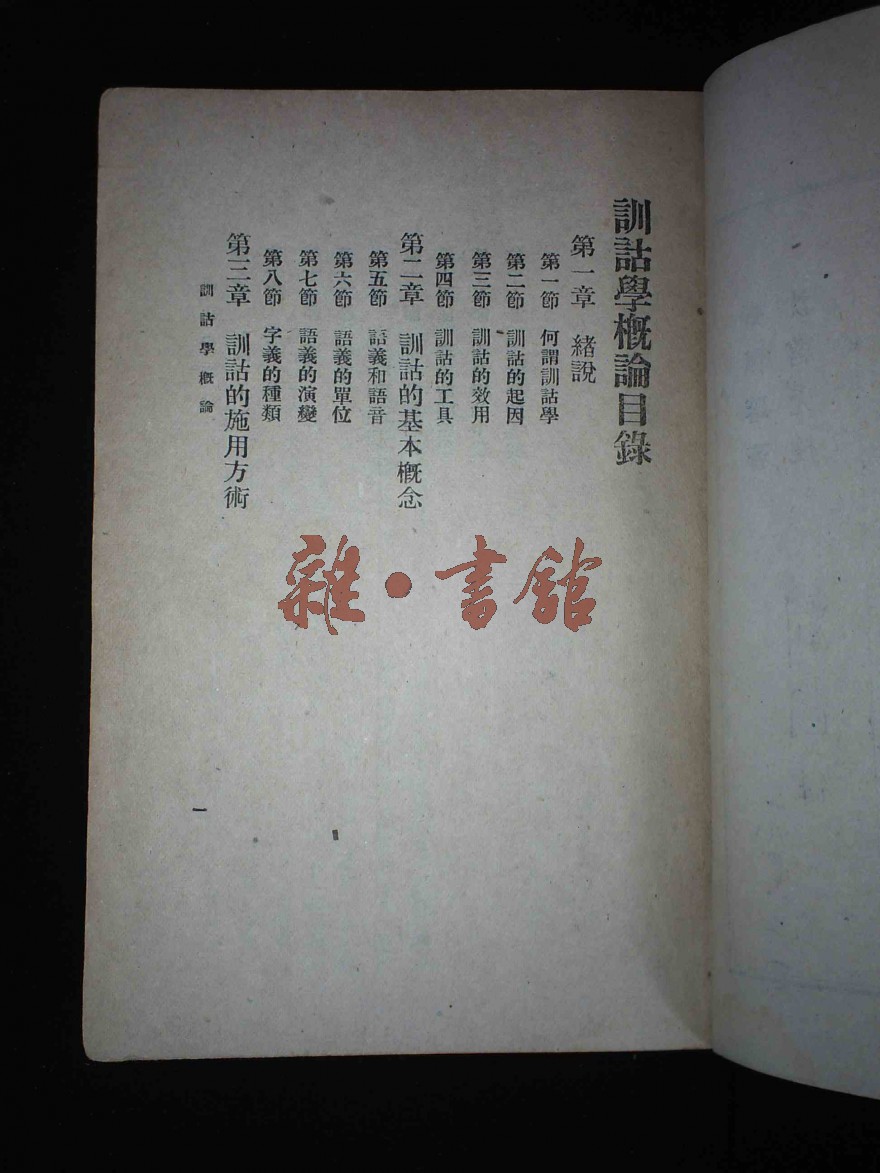 訓詁學概論目錄
第一章 緒說
第一節 何謂訓詁學
第二節 訓詁的起因
第三節 訓詁的效用
第四節 訓詁的工具
第二章 訓詁的基本概念
第五節 語義和語音
第六節 語義的單位
第七節 語義的演變
第八節 字義的種類
第三章 訓詁的施用方術
訓詁學概論
一
雜·書館